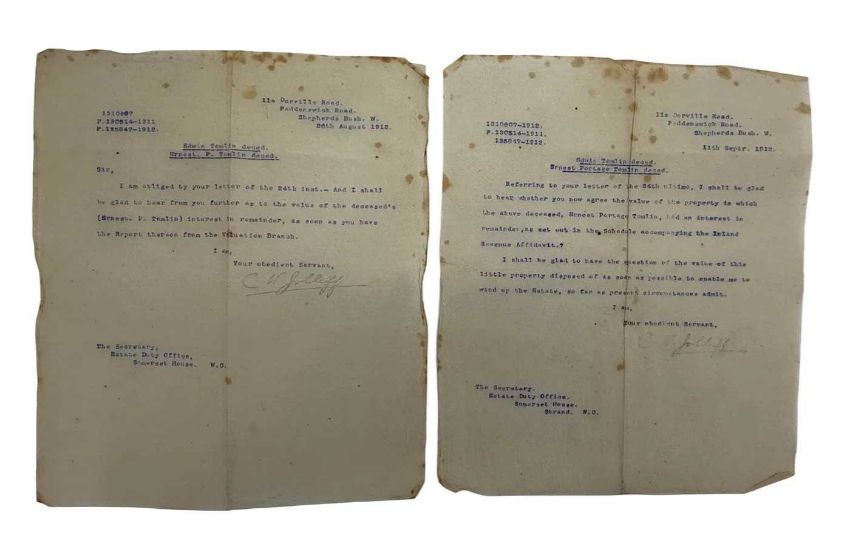 11a Dorville Road.
Paddenswick Road.
Shepherds Bush. W.
26th August 1912.
F.130514-1911
F.135647-1912.
Edwin Tomlin decd.
Ernest. P. Tomlin decd.
Sir,
I am obliged by your letter of the 24th inst.- And I shall
be glad to hear from you further as to the value of the deceased's
(Ernest. P. Tomlin) interest in remainder, as soon as you have
the Report thereon from the Valuation Branch.
I am,
Your obedient Servant,
The Secretary.
Estate Duty Office,
Somerset House. W.C.
11a Dorville Road.
Paddenswick Road.
Shepherds Bush. W.
11th Septr. 1912.
F.130514-1911.
135647-1912.
Edwin Tomlin decd.
Ernest Portage Tomlin decd.
Referring to your letter of the 24th ultimo, I shall be glad
to hear whether you now agree the value of the property in which
the above deceased, Ernest Portage Tomlin, had an interest in
remainder, as set out in the Schedule accompanying the Inland
Revenue Affidavit.?
I shall be glad to have the question of the value of this
little property disposed of as soon as possible to enable me to
wind up the Estate, so far as present circumstances admit.
I am,
Your obedient Servant,
The Secretary.
Estate Duty Office.
Somerset House.
Strand. W.C.